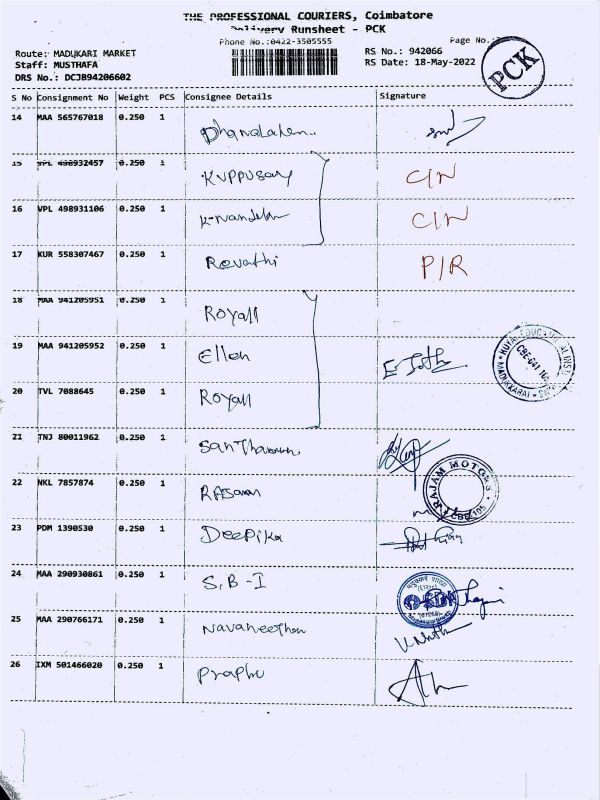 THE PROFESSIONAL COURIERS, Coimbatore
Delivery Runsheet - PCK
Phone No.:0422-3505555
Page No.:
Route: MADUKARI MARKET
RS No.: 942066
Staff: MUSTHAFA
RS Date: 18-May-2022
DRS No.: DCJB94206602
PCK
S No Consignment No Weight PCS Consignee Details Signature
14 MAA 565767018 0.250 1
15 VPL 498932457 0.250 1 Kuppusamy C/N
16 VPL 498931106 0.250 1 C/N
17 KUR 558307467 0.250 1 Revathi P/R
18 MAA 941205951 0.250 1 Royall
19 MAA 941205952 0.250 1 Ellen
20 TVL 7088645 0.250 1 Royall
21 TNJ 80011962 0.250 1
22 NKL 7857874 0.250 1
RAJAM MOTORS
CBE-105
23 PDM 1390530 0.250 1 Deepika
24 MAA 290930861 0.250 1 S.B-I
25 MAA 290766171 0.250 1 Navaneethan
26 IXM 501466020 0.250 1 Praphu